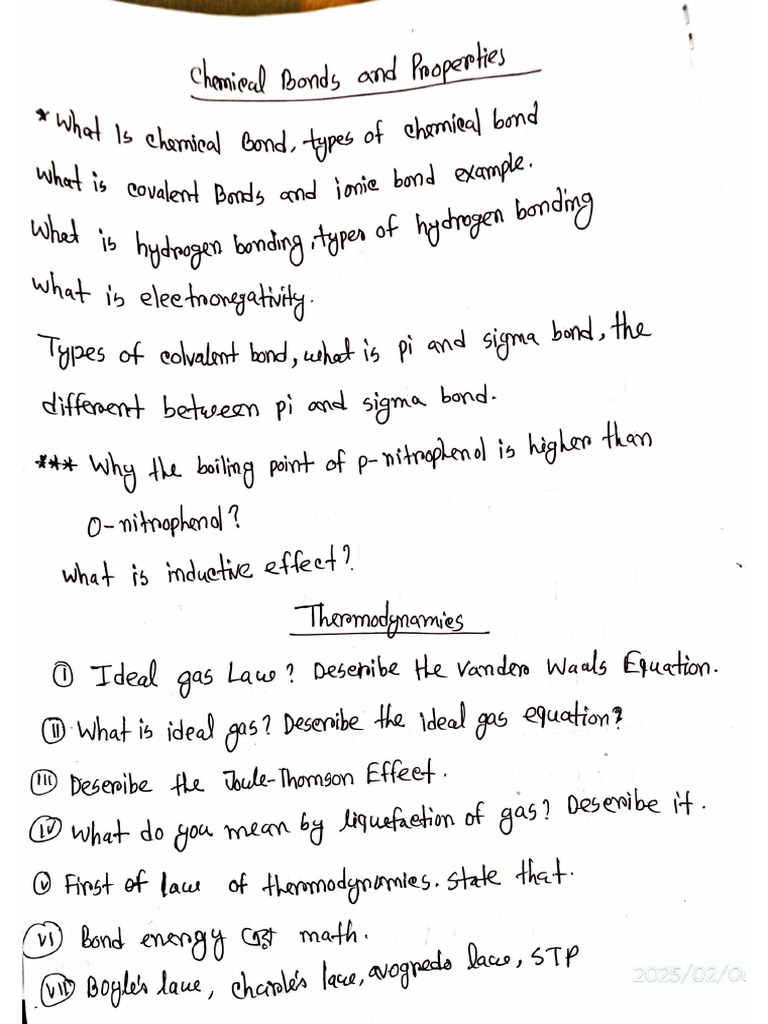 Chemical Bonds and Properties
* What Is chemical Bond, types of chemical bond
What is covalent Bonds and ionic bond example.
What is hydrogen bonding, types of hydrogen bonding
What is electronegativity.
Types of colvalent bond, what is pi and sigma bond, the
different between pi and sigma bond.
*** Why the boiling point of p-nitrophenol is higher than
O-nitrophenol?
What is inductive effect?
Thermodynamics
(I) Ideal gas Law? Describe the Vanders Waals Equation.
(II) What is ideal gas? Describe the ideal gas equation?
(III) Describe the Joule-Thomson Effect.
(IV) What do you mean by liquefaction of gas? Describe it.
(V) First of law of thermodynamics. State that.
(VI) Bond energy এর math.
(VII) Boyle's law, Charole's law, avogredo law, STP
2025/02/06